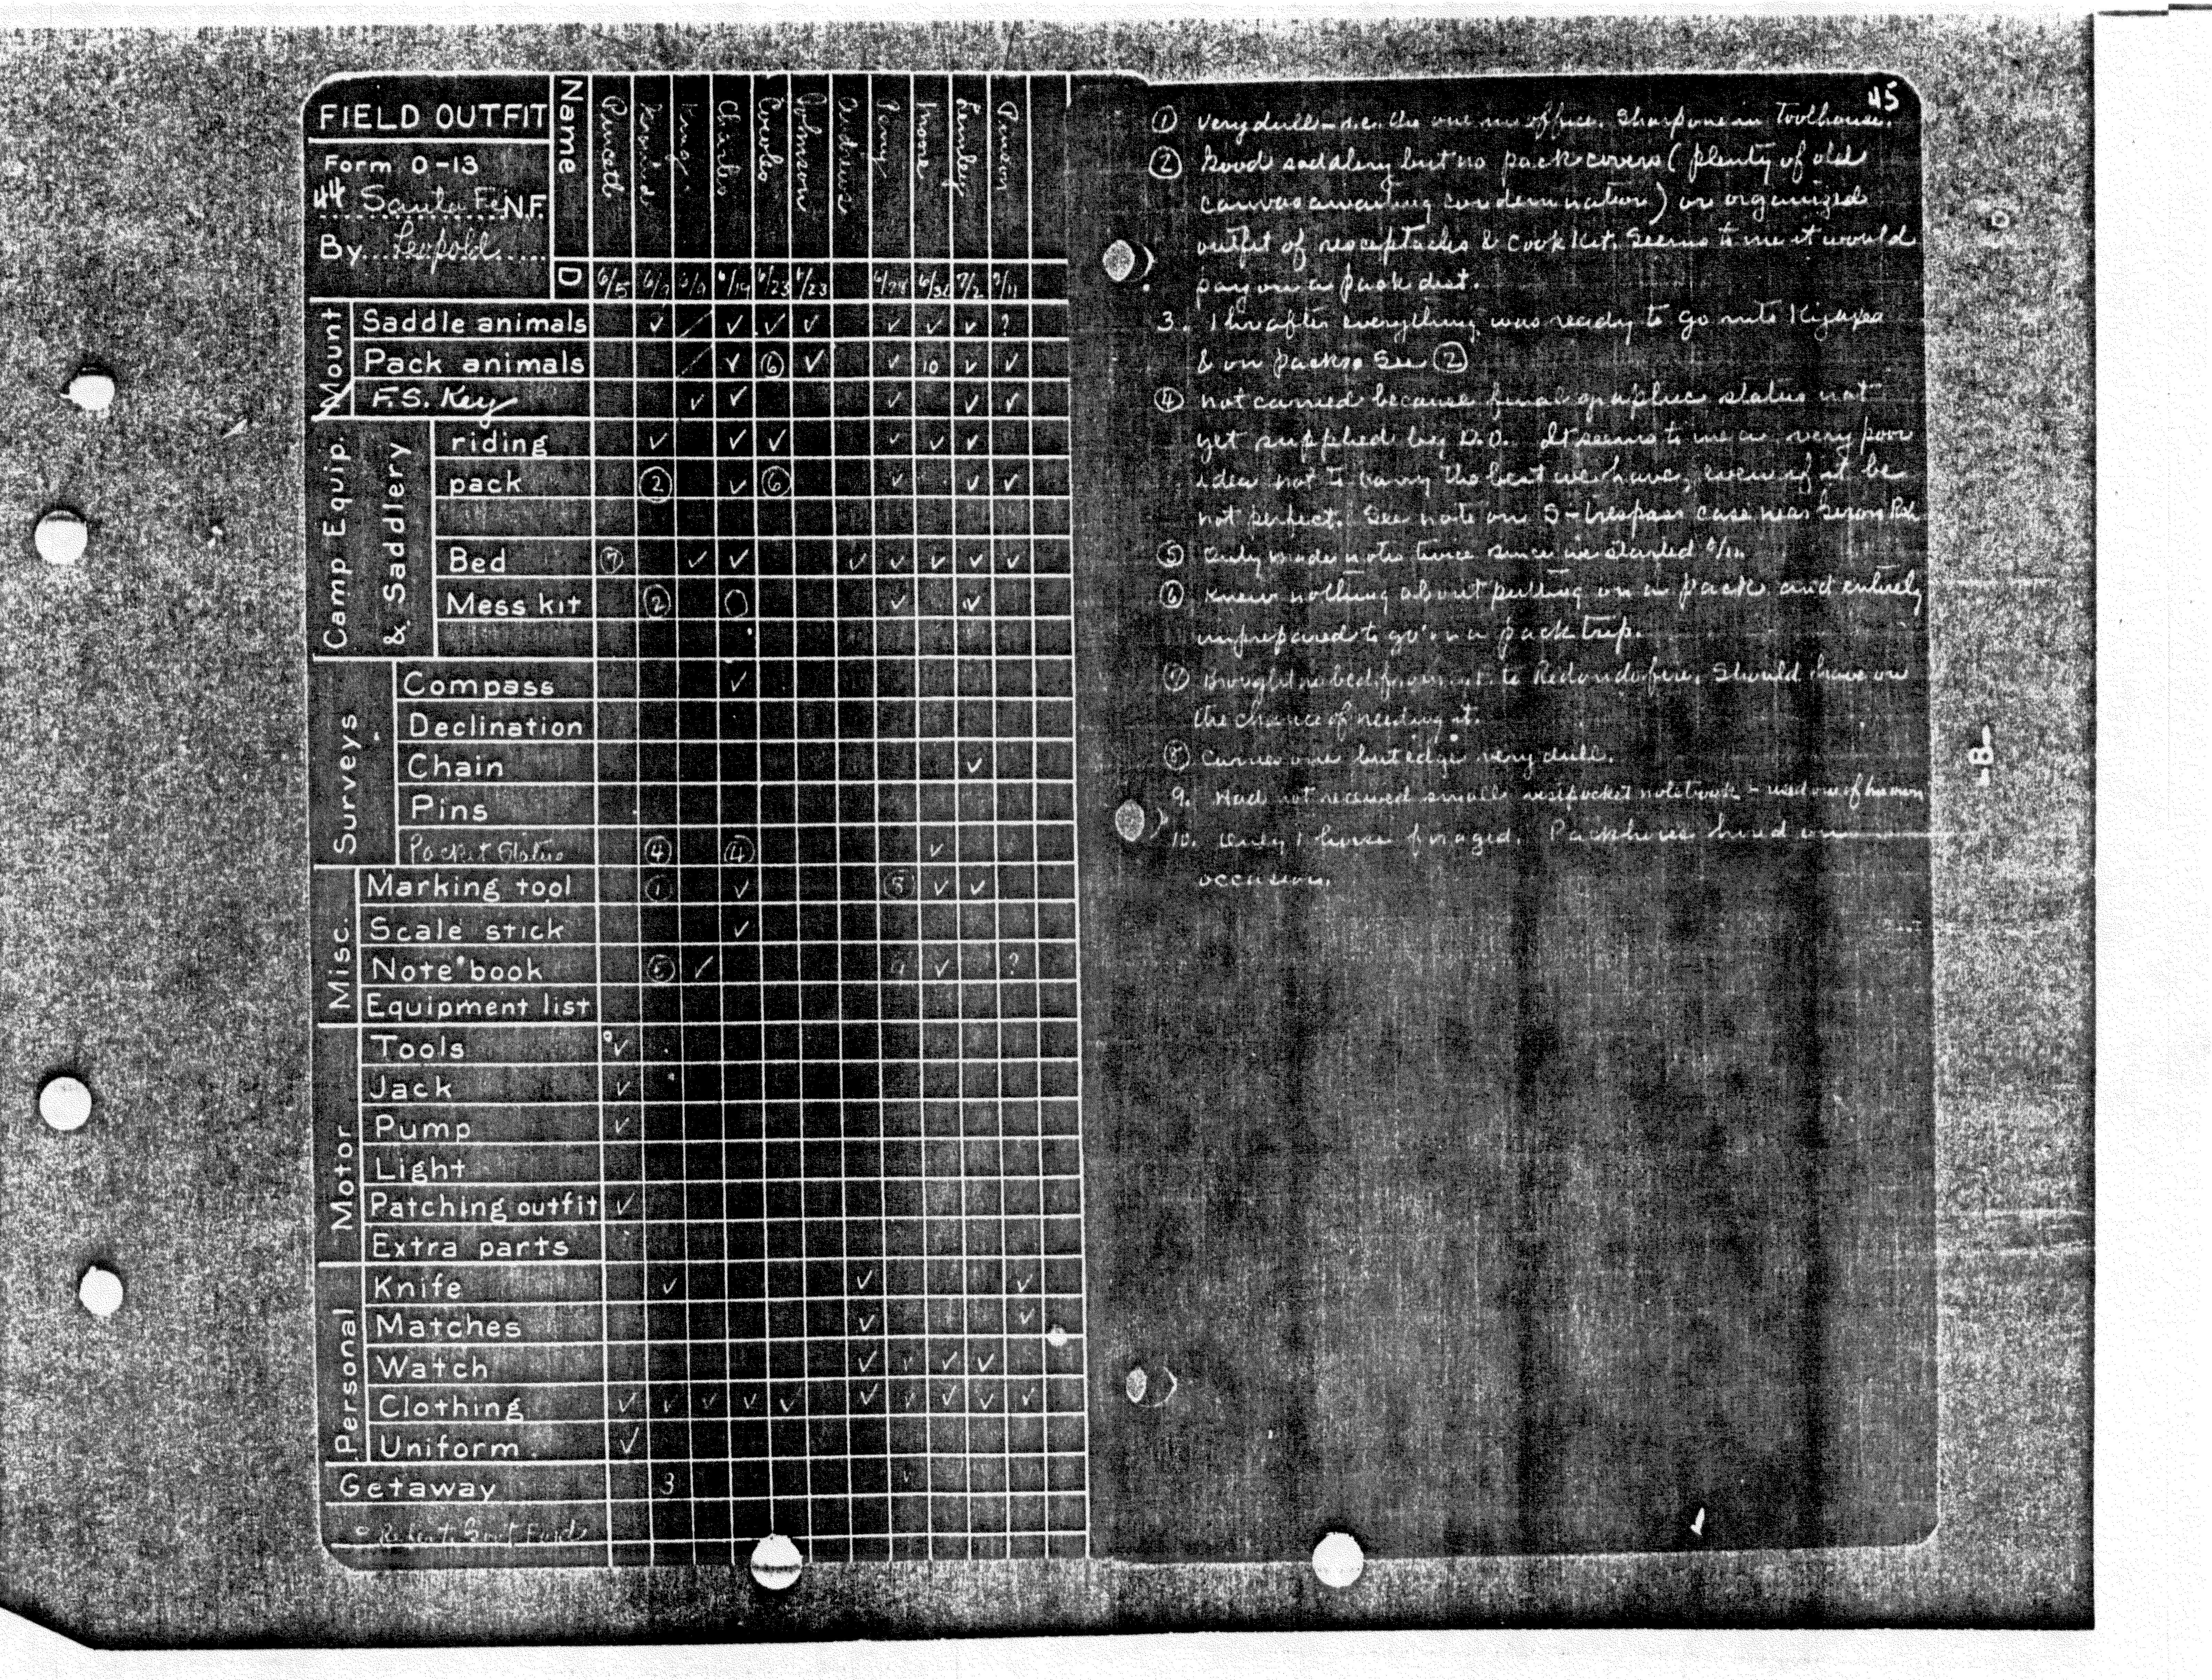 FIELD OUTFIT
Form O-13
44 Santa Fe N.F.
By Leopold
Name
D 6/5 6/19 6/23 6/23 7/2 7/11
Mount
Saddle animals ✓ ✓ ✓ ✓ ✓ ✓ ✓ ?
Pack animals ✓ ⑥ ✓ ✓ 10 ✓ ✓
F.S. Key ✓ ✓ ✓ ✓ ✓
Camp Equip. & Saddlery
riding ✓ ✓ ✓ ✓ ✓ ✓
pack ② ✓ ⑥ ✓ ✓ ✓
Bed ⑦ ✓ ✓ ✓ ✓ ✓ ✓ ✓
Mess kit ② ✓ ✓
Surveys
Compass ✓
Declination
Chain ✓
Pins
Pocket Status ④ ④ ✓
Misc.
Marking tool ① ✓ ⑧ ✓ ✓
Scale stick ✓
Note book ⑤ ✓ 9 ✓ ?
Equipment list
Motor
Tools ✓
Jack ✓
Pump ✓
Light
Patching outfit ✓
Extra parts
Personal
Knife ✓ ✓ ✓
Matches ✓ ✓
Watch ✓ ✓ ✓ ✓
Clothing ✓ ✓ ✓ ✓ ✓ ✓ ✓ ✓ ✓ ✓
Uniform ✓
Getaway 3 ✓
45
① Very dull – i.e. the one in office. Sharp one in toolhouse.
② Good saddlery but no pack covers (plenty of old
canvas awaiting condemnation) or organized
outfit of receptacles & cook kit. Seems to me it would
pay on a pack dist.
3. 1 hr after everything was ready to go
& on packs. See ②
④ Not carried because final status not
yet supplied by D.O. It seems to me a very poor
idea not to carry the best we have, even if it be
not perfect. See note on S-trespass case near
⑤ Only made notes twice since he started
⑥ Knew nothing about putting on a pack and entirely
unprepared to go on a pack trip.
⑦ Brought no bed to Redondo fire. Should have on
the chance of needing it.
⑧ Carries one but edge very dull.
9. Had not received small vest pocket notebook – used one of his own
10. Only 1 horse foraged. Packhorse hired on
occasion.
-8-